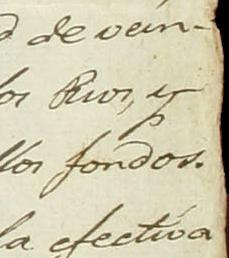 d de vein-
los Rios, y
llos fondos.
la efectiva